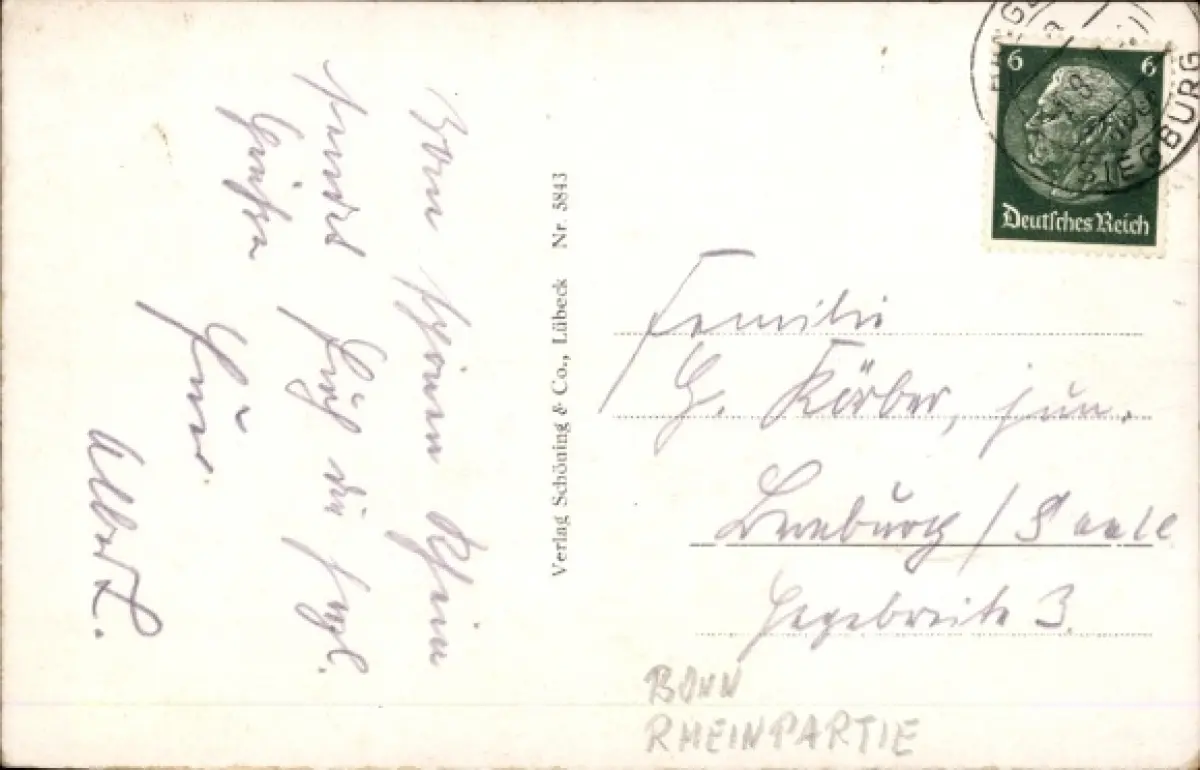 Vom schönen Rhein
sendet Euch die herzl.
Grüße
Euer
Albert.
Verlag Schöning & Co., Lübeck Nr. 5843
6 6
Deutsches Reich
SIEGBURG
Familie
G. Körber, jun.
Bernburg / Saale
3.
BONN
RHEINPARTIE